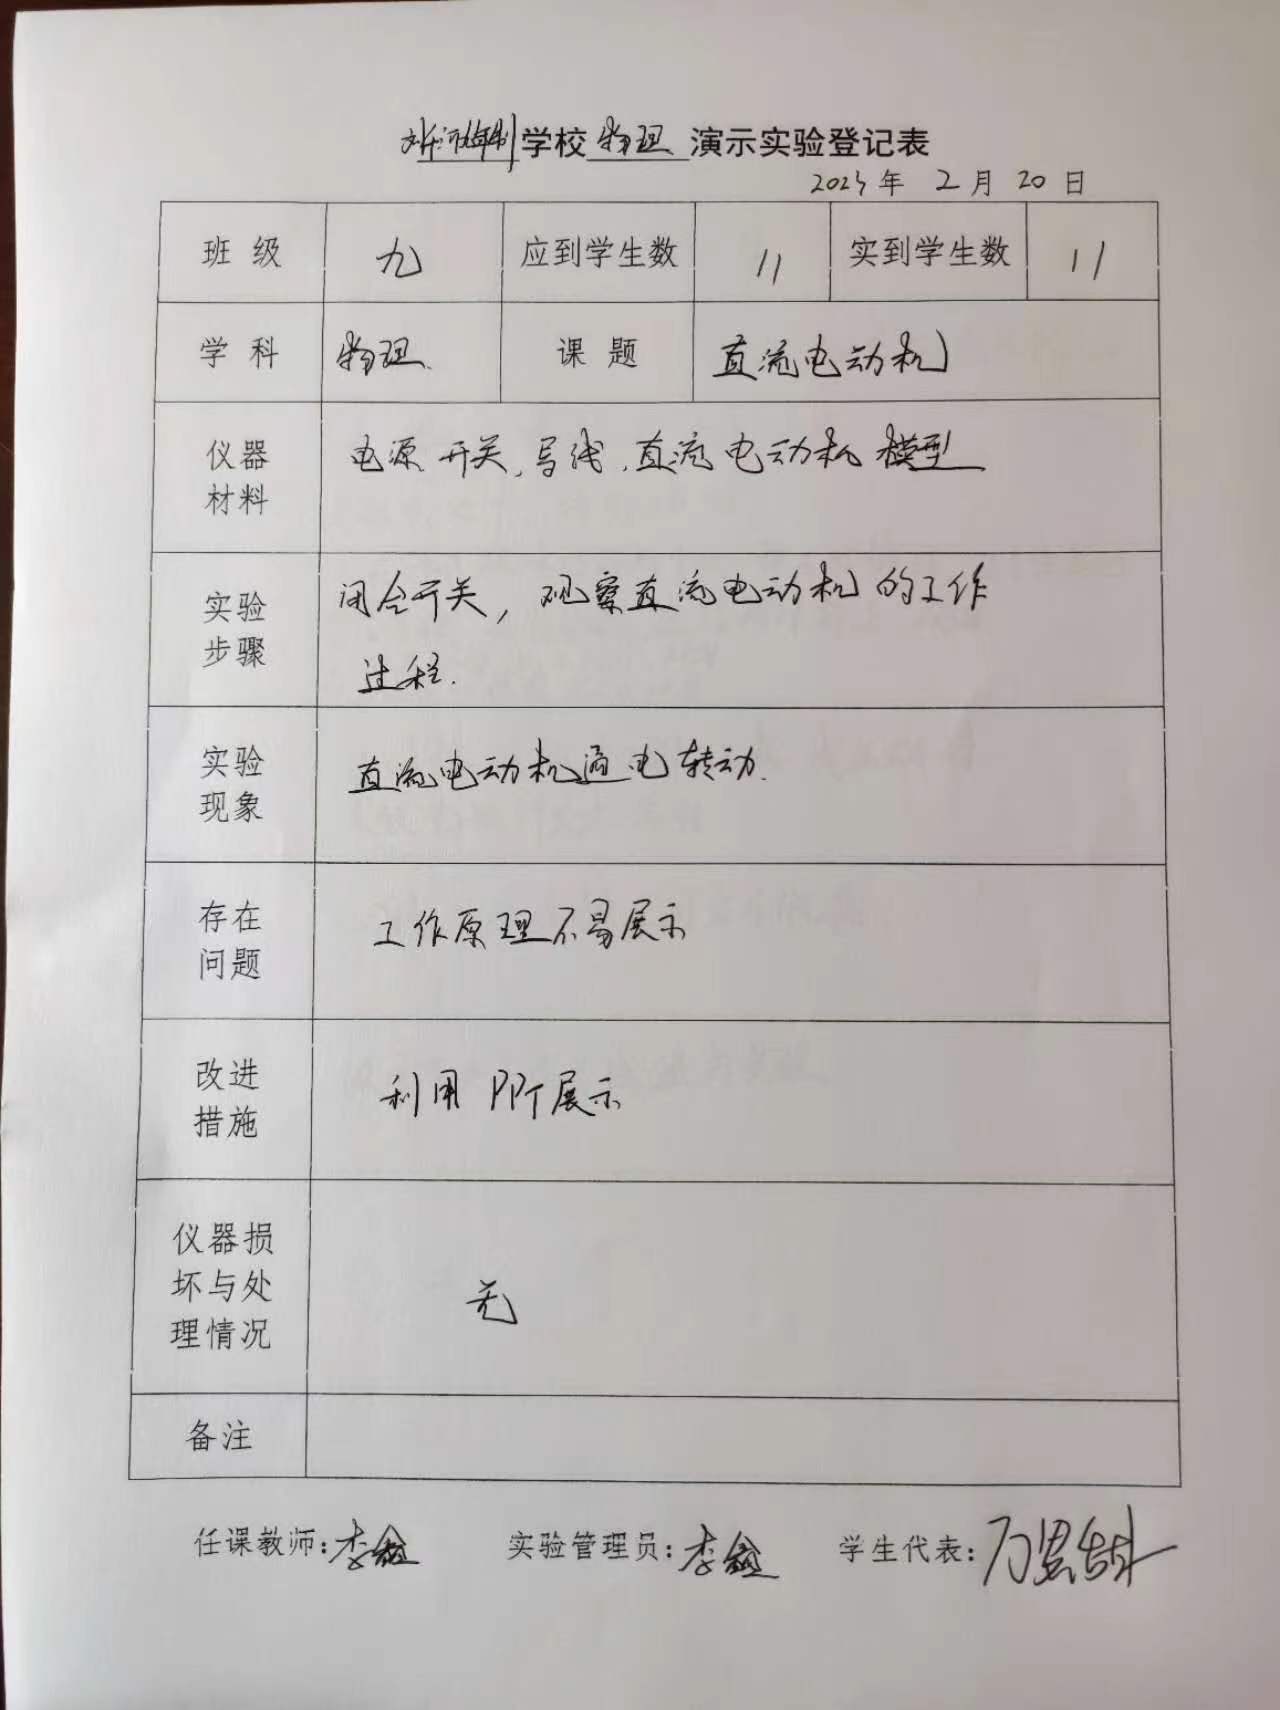 学校 物理 演示实验登记表
年 2 月 20 日
班 级 九 应到学生数 11 实到学生数 11
学 科 物理 课 题 直流电动机
仪器
材料
电源 开关, 导线, 直流电动机 模型
实验
步骤
闭合开关, 观察直流电动机的工作
过程.
实验
现象
直流电动机通电转动.
存在
问题
工作原理不易展示
改进
措施
利用 PPT 展示
仪器损
坏与处
理情况
无
备注
任课教师:李鑫 实验管理员:李鑫 学生代表: